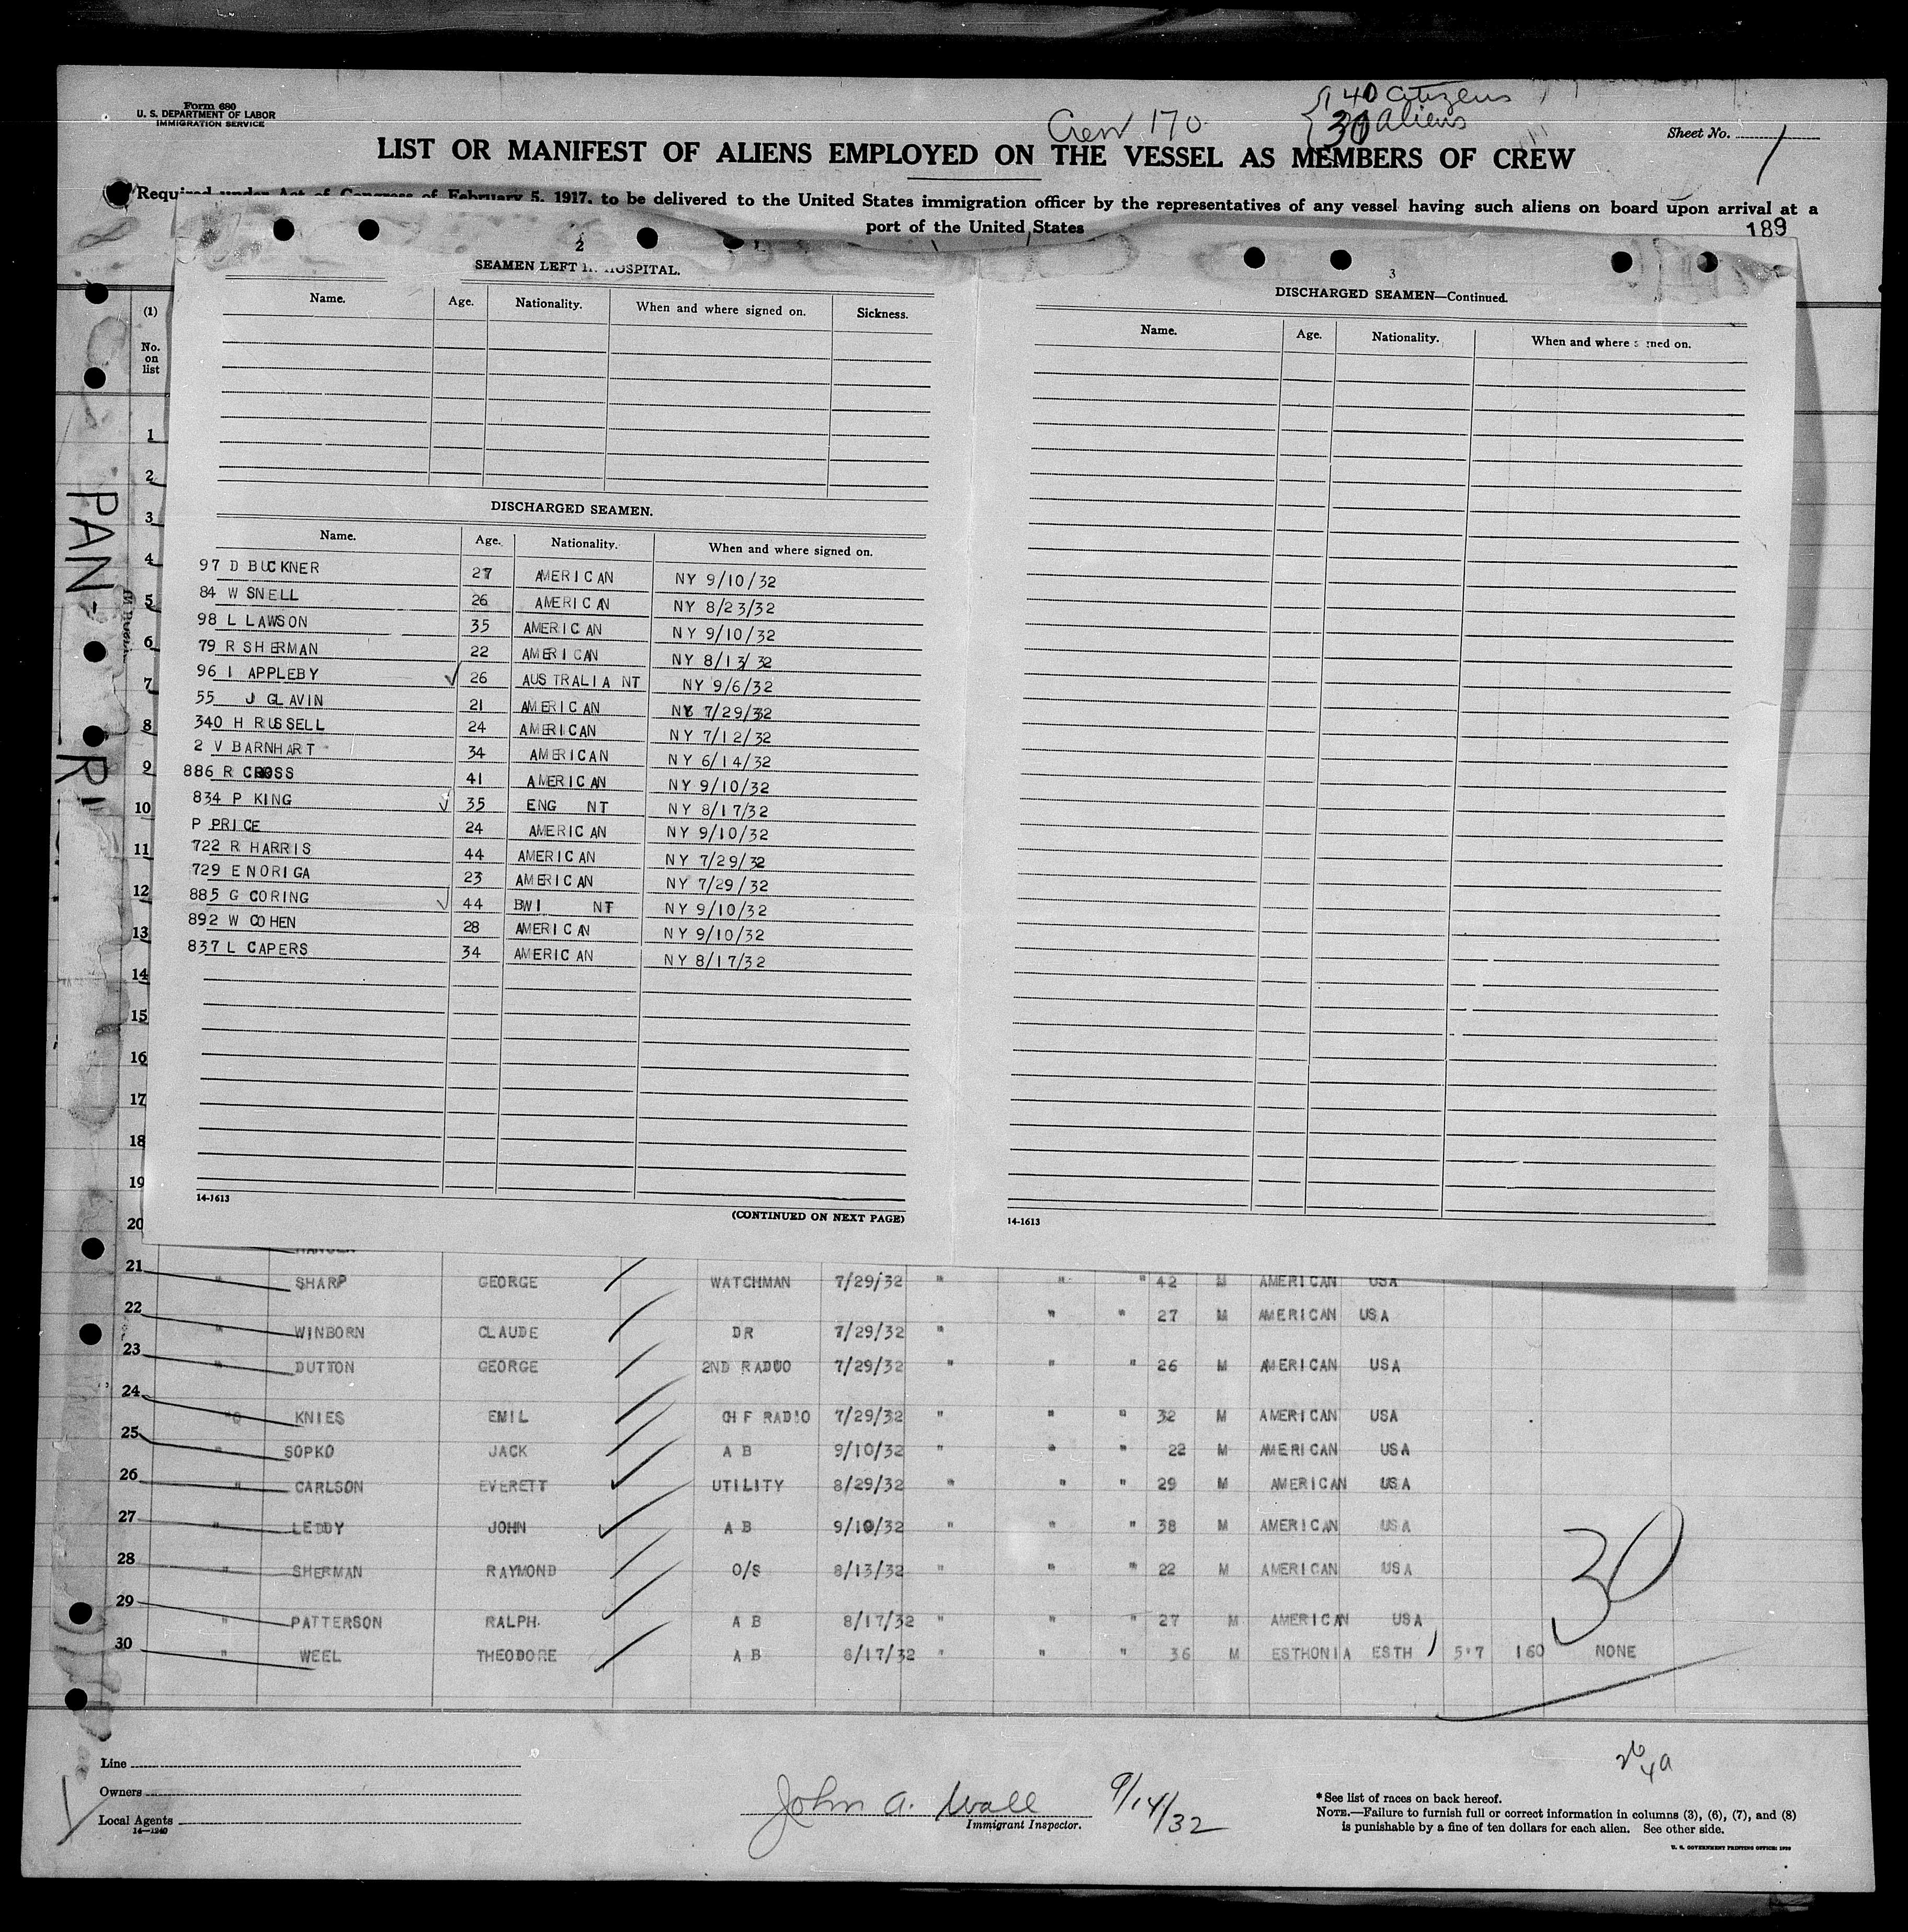 Form 680
U. S. DEPARTMENT OF LABOR
IMMIGRATION SERVICE
Crew 170
140 Citizens
30 Aliens
Sheet No. 1
LIST OR MANIFEST OF ALIENS EMPLOYED ON THE VESSEL AS MEMBERS OF CREW
Required under Act of Congress of February 5, 1917, to be delivered to the United States immigration officer by the representatives of any vessel having such aliens on board upon arrival at a
port of the United States
189
(1)
No.
on
list
PAN-
2
SEAMEN LEFT HOSPITAL.
Name. Age. Nationality. When and where signed on. Sickness.
DISCHARGED SEAMEN.
Name. Age. Nationality. When and where signed on.
97 D BUCKNER 27 AMERICAN NY 9/10/32
84 W SNELL 26 AMERICAN NY 8/23/32
98 L LAWSON 35 AMERICAN NY 9/10/32
79 R SHERMAN 22 AMERICAN NY 8/13/32
96 I APPLEBY 26 AUSTRALIA NT NY 9/6/32
55 J GLAVIN 21 AMERICAN NY 7/29/32
340 H RUSSELL 24 AMERICAN NY 7/12/32
2 V BARNHART 34 AMERICAN NY 6/14/32
886 R CROSS 41 AMERICAN NY 9/10/32
834 P KING 35 ENG NT NY 8/17/32
P PRICE 24 AMERICAN NY 9/10/32
722 R HARRIS 44 AMERICAN NY 7/29/32
729 E NORIGA 23 AMERICAN NY 7/29/32
885 G CORING 44 BWI NT NY 9/10/32
892 W COHEN 28 AMERICAN NY 9/10/32
837 L CAPERS 34 AMERICAN NY 8/17/32
14-1613
(CONTINUED ON NEXT PAGE)
3
DISCHARGED SEAMEN—Continued.
Name. Age. Nationality. When and where signed on.
14-1613
1
2
3
4
5
6
7
8
9
10
11
12
13
14
15
16
17
18
19
20
21 " SHARP GEORGE WATCHMAN 7/29/32 " " " 42 M AMERICAN USA
22 " WINBORN CLAUDE DR 7/29/32 " " " 27 M AMERICAN USA
23 " DUTTON GEORGE 2ND RADUO 7/29/32 " " " 26 M AMERICAN USA
24 " KNIES EMIL CHF RADIO 7/29/32 " " " 32 M AMERICAN USA
25 " SOPKO JACK A B 9/10/32 " " " 22 M AMERICAN USA
26 " CARLSON EVERETT UTILITY 8/29/32 " " " 29 M AMERICAN USA
27 " LEDDY JOHN A B 9/10/32 " " " 38 M AMERICAN USA
28 " SHERMAN RAYMOND O/S 8/13/32 " " " 22 M AMERICAN USA
29 " PATTERSON RALPH. A B 8/17/32 " " " 27 M AMERICAN USA
30 " WEEL THEODORE A B 8/17/32 " " " 36 M ESTHONIA ESTH 5'7 160 NONE
30
Line
Owners
Local Agents
14—1240
John A. Wall 9/14/32
Immigrant Inspector.
* See list of races on back hereof.
NOTE.—Failure to furnish full or correct information in columns (3), (6), (7), and (8)
is punishable by a fine of ten dollars for each alien. See other side.